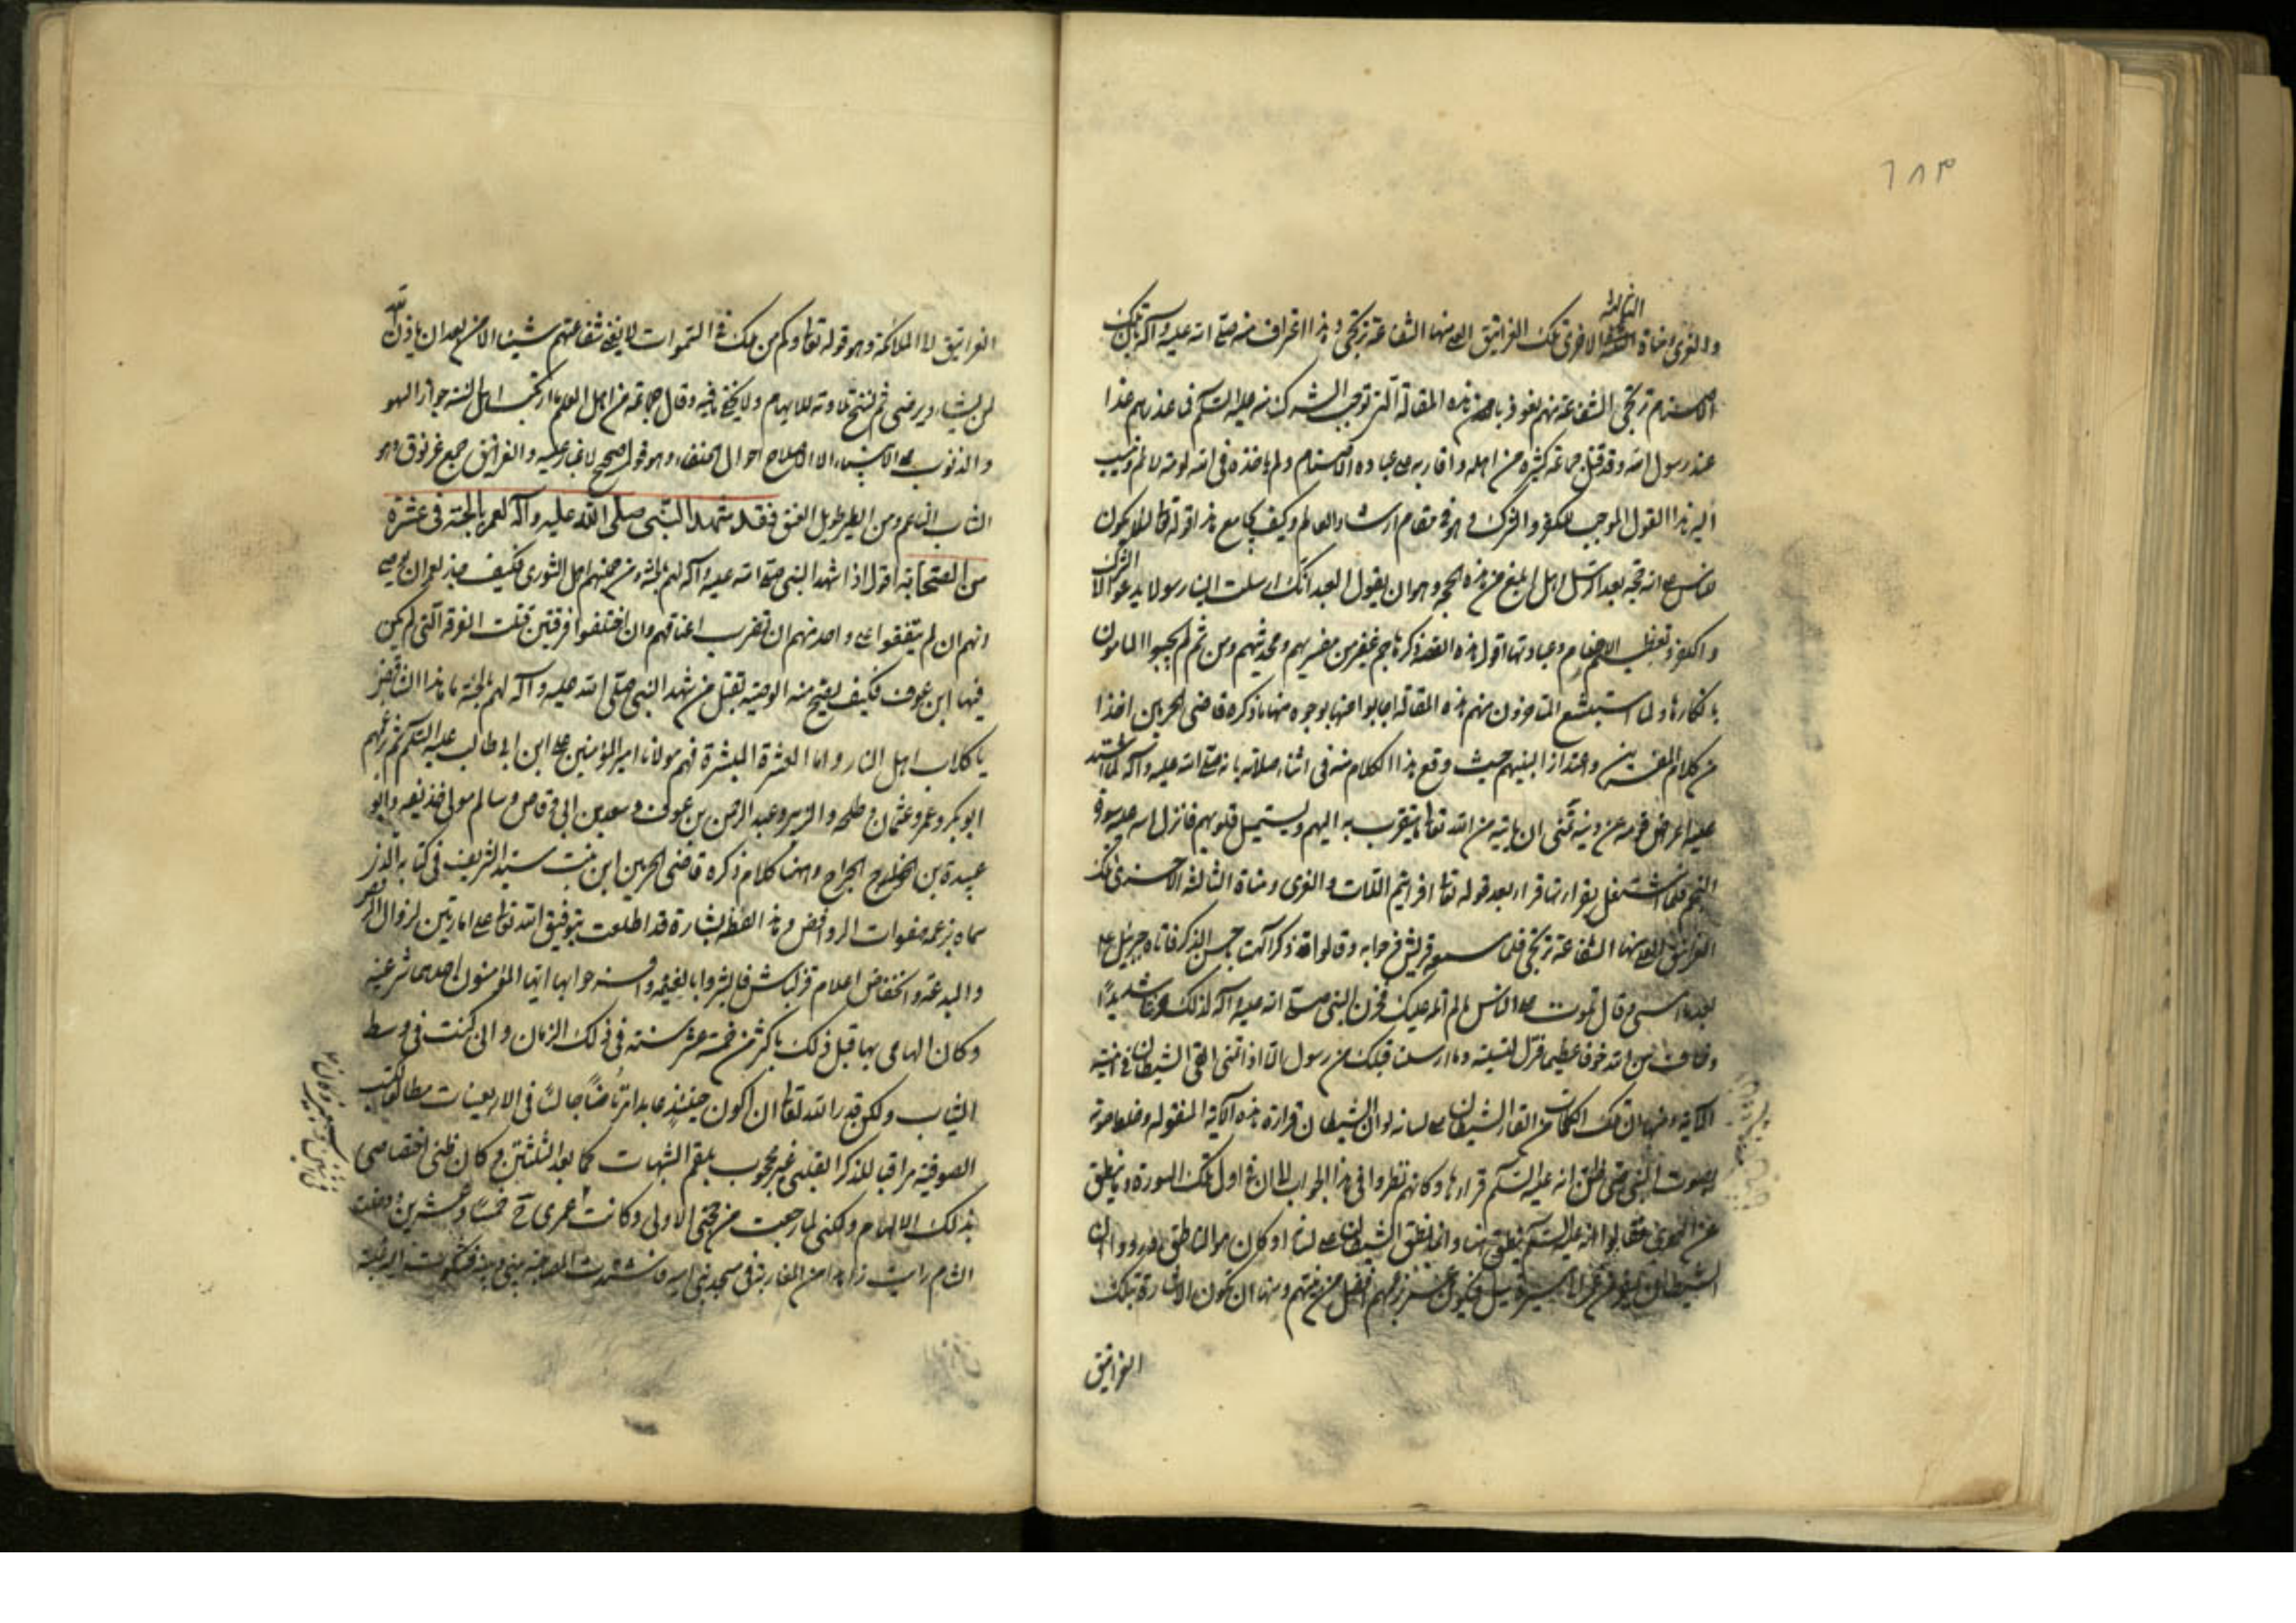 ١٨٣
الثالثة
والعزى ومناة الاخرى تلك الغرانيق العلى منها الشفاعة ترتجى وهذا اعتراف منه صلى الله عليه وآله بان تلك
الاصنام ترتجى الشفاعة منهم نعوذ بالله من هذه المقالة التى توجب الشرك منه عليه السلام فى عذرهم هذا
عند رسول الله وقد قتل جماعة كثيرة من اهله واقاربه على عبادة الاصنام ولم ياخذه فى الله لومة لائم ونسب
اليه هذا القول الموجب للكفر والشرك وهو فى مقام ارشاد العالم وكيف يجامع هذا قوله تعالى لئلا يكون
للناس على الله حجة بعد الرسل اهل ابلغ من هذه الحجة وهو ان يقول العبد انك ارسلت الينا رسولا يدعو الا الشرك
والكفر وتعظيم الاصنام وعبادتها اقول هذه القصة ذكرها جم غفير من مفسريهم ومحدثيهم ومن ثم لم يجيبوا المامون
بانكارها ولما استبشع المتاخرون منهم هذه المقالة اجابوا عنها بوجوه منها ما ذكره قاضى الحرمين اخذا
من كلام المفسرين واعتذارا لنبيهم حيث وقع هذا الكلام منه فى اثناء صلاته بانه صلى الله عليه وآله لما اشتد
عليه اعراض قومه عن دينه تمنى ان ياتيه من الله تعالى ما يتقرب به اليهم ويستميل قلوبهم فانزل الله عليه سورة
النجم فلما اشتغل بقرائتها قرا بعد قوله تعالى افرايتم اللات والعزى ومناة الثالثة الاخرى تلك
الغرانيق العلى منها الشفاعة ترتجى فلما سمعه قريش فرحوا به وقالوا قد ذكر آلهتنا باحسن الذكر فاتاه جبرئيل ع
بعد ما امسى وقال تلوت على الناس ما لم اتله عليك فحزن النبى صلى الله عليه وآله لذلك حزنا شديدًا
وخاف من الله خوفا عظيما فنزل لتسليته وما ارسلنا قبلك من رسول الا اذا تمنى القى الشيطان فى امنيته
الآية ومنها ان تلك الكلمات من القاء الشيطان على لسانه لو ان الشيطان قرا فى هذه الآية المنقولة وخلط صوته
بصوت النبى حتى ظن انه عليه السلام قراءها وكانهم نظروا فى هذا الجواب الى ان فى اول تلك السورة وما ينطق
عن الهوى فقالوا انه عليه السلم ما نطق بها وانما نطق الشيطان على لسانه او كان هو الناطق ورووا ان
الشيطان يفر من عمر فيكون عمر بزعمهم افضل من نبيهم ومنها ان تكون الاشارة بتلك
الغرانيق
الغرانيق الى الملائكة وهو قوله تعالى وكم من ملك فى السموات لا يغنى شفاعتهم شيئا الا من بعد ان ياذن الله
لمن يشاء ويرضى ثم نسخ تلاوته للايهام ولا يخفى ما فيه وقال جماعة من اهل العلم ما ارتكب اهل السنة جواز السهو
والذنوب على الانبياء الا لاصلاح احوال الخلفاء وهو قول صحيح لا غبار عليه والغرانيق جمع غرنوق وهو
الشاب الناعم ومن الطير طويل العنق فقد شهد النبى صلى الله عليه وآله لعمر بالجنة فى عشرة
من الصحابة اقول اذا شهد النبى صلى الله عليه وآله لهم بالجنة ومن جملتهم اهل الشورى فكيف جاز لعمر ان يوصى
انهم ان لم يتفقوا على واحد منهم ان تضرب اعناقهم وان اختلفوا فرقتين قتلت الفرقة التى لم يكن
فيها ابن عوف فكيف يصح منه الوصية بقتل من شهد النبى صلى الله عليه وآله لهم بالجنة ما هذا التناقض
يا كلاب اهل النار واما العشرة المبشرة فهم مولانا امير المؤمنين على ابن ابى طالب عليه السلم ثم بزعمهم
ابو بكر وعمر وعثمان وطلحة والزبير وعبد الرحمن بن عوف وسعد بن ابى وقاص وسالم مولى حذيفة وابو
عبيدة بن الجراح وههنا كلام ذكره قاضى الحرمين ابن بنت سيد الشريف فى كتابه الذى
سماه بزعمه هفوات الروافض وهذا لفظه بشارة قد اطلعت بتوفيق الله تعالى على امارتين لزوال الرفض
والبدعة وانخفاض اعلام قزلباش فابشروا بالغنيمة وافرحوا بها ايها المؤمنون احدهما شرعية
وكان الهامى بها قبل ذلك باكثر من خمسة عشر سنة فى ذلك الزمان وانى كنت فى وسط
الشباب ولكن قدر الله تعالى ان اكون حينئذ عابدا مرتاضًا جالسًا فى الاربعينات مطالعا لكتب
الصوفية مراقبا للذكر القلبى غير محجوب بلقم الشبهات كما بعد الثلثين وكان ظنى اختصاصى
بذلك الالهام ولكنى لما رجعت من حجتى الاولى وكانت عمرى خمسًا وعشرين ودخلت
الشام رايت زاهدا من المغاربة فى مسجد بنى امية